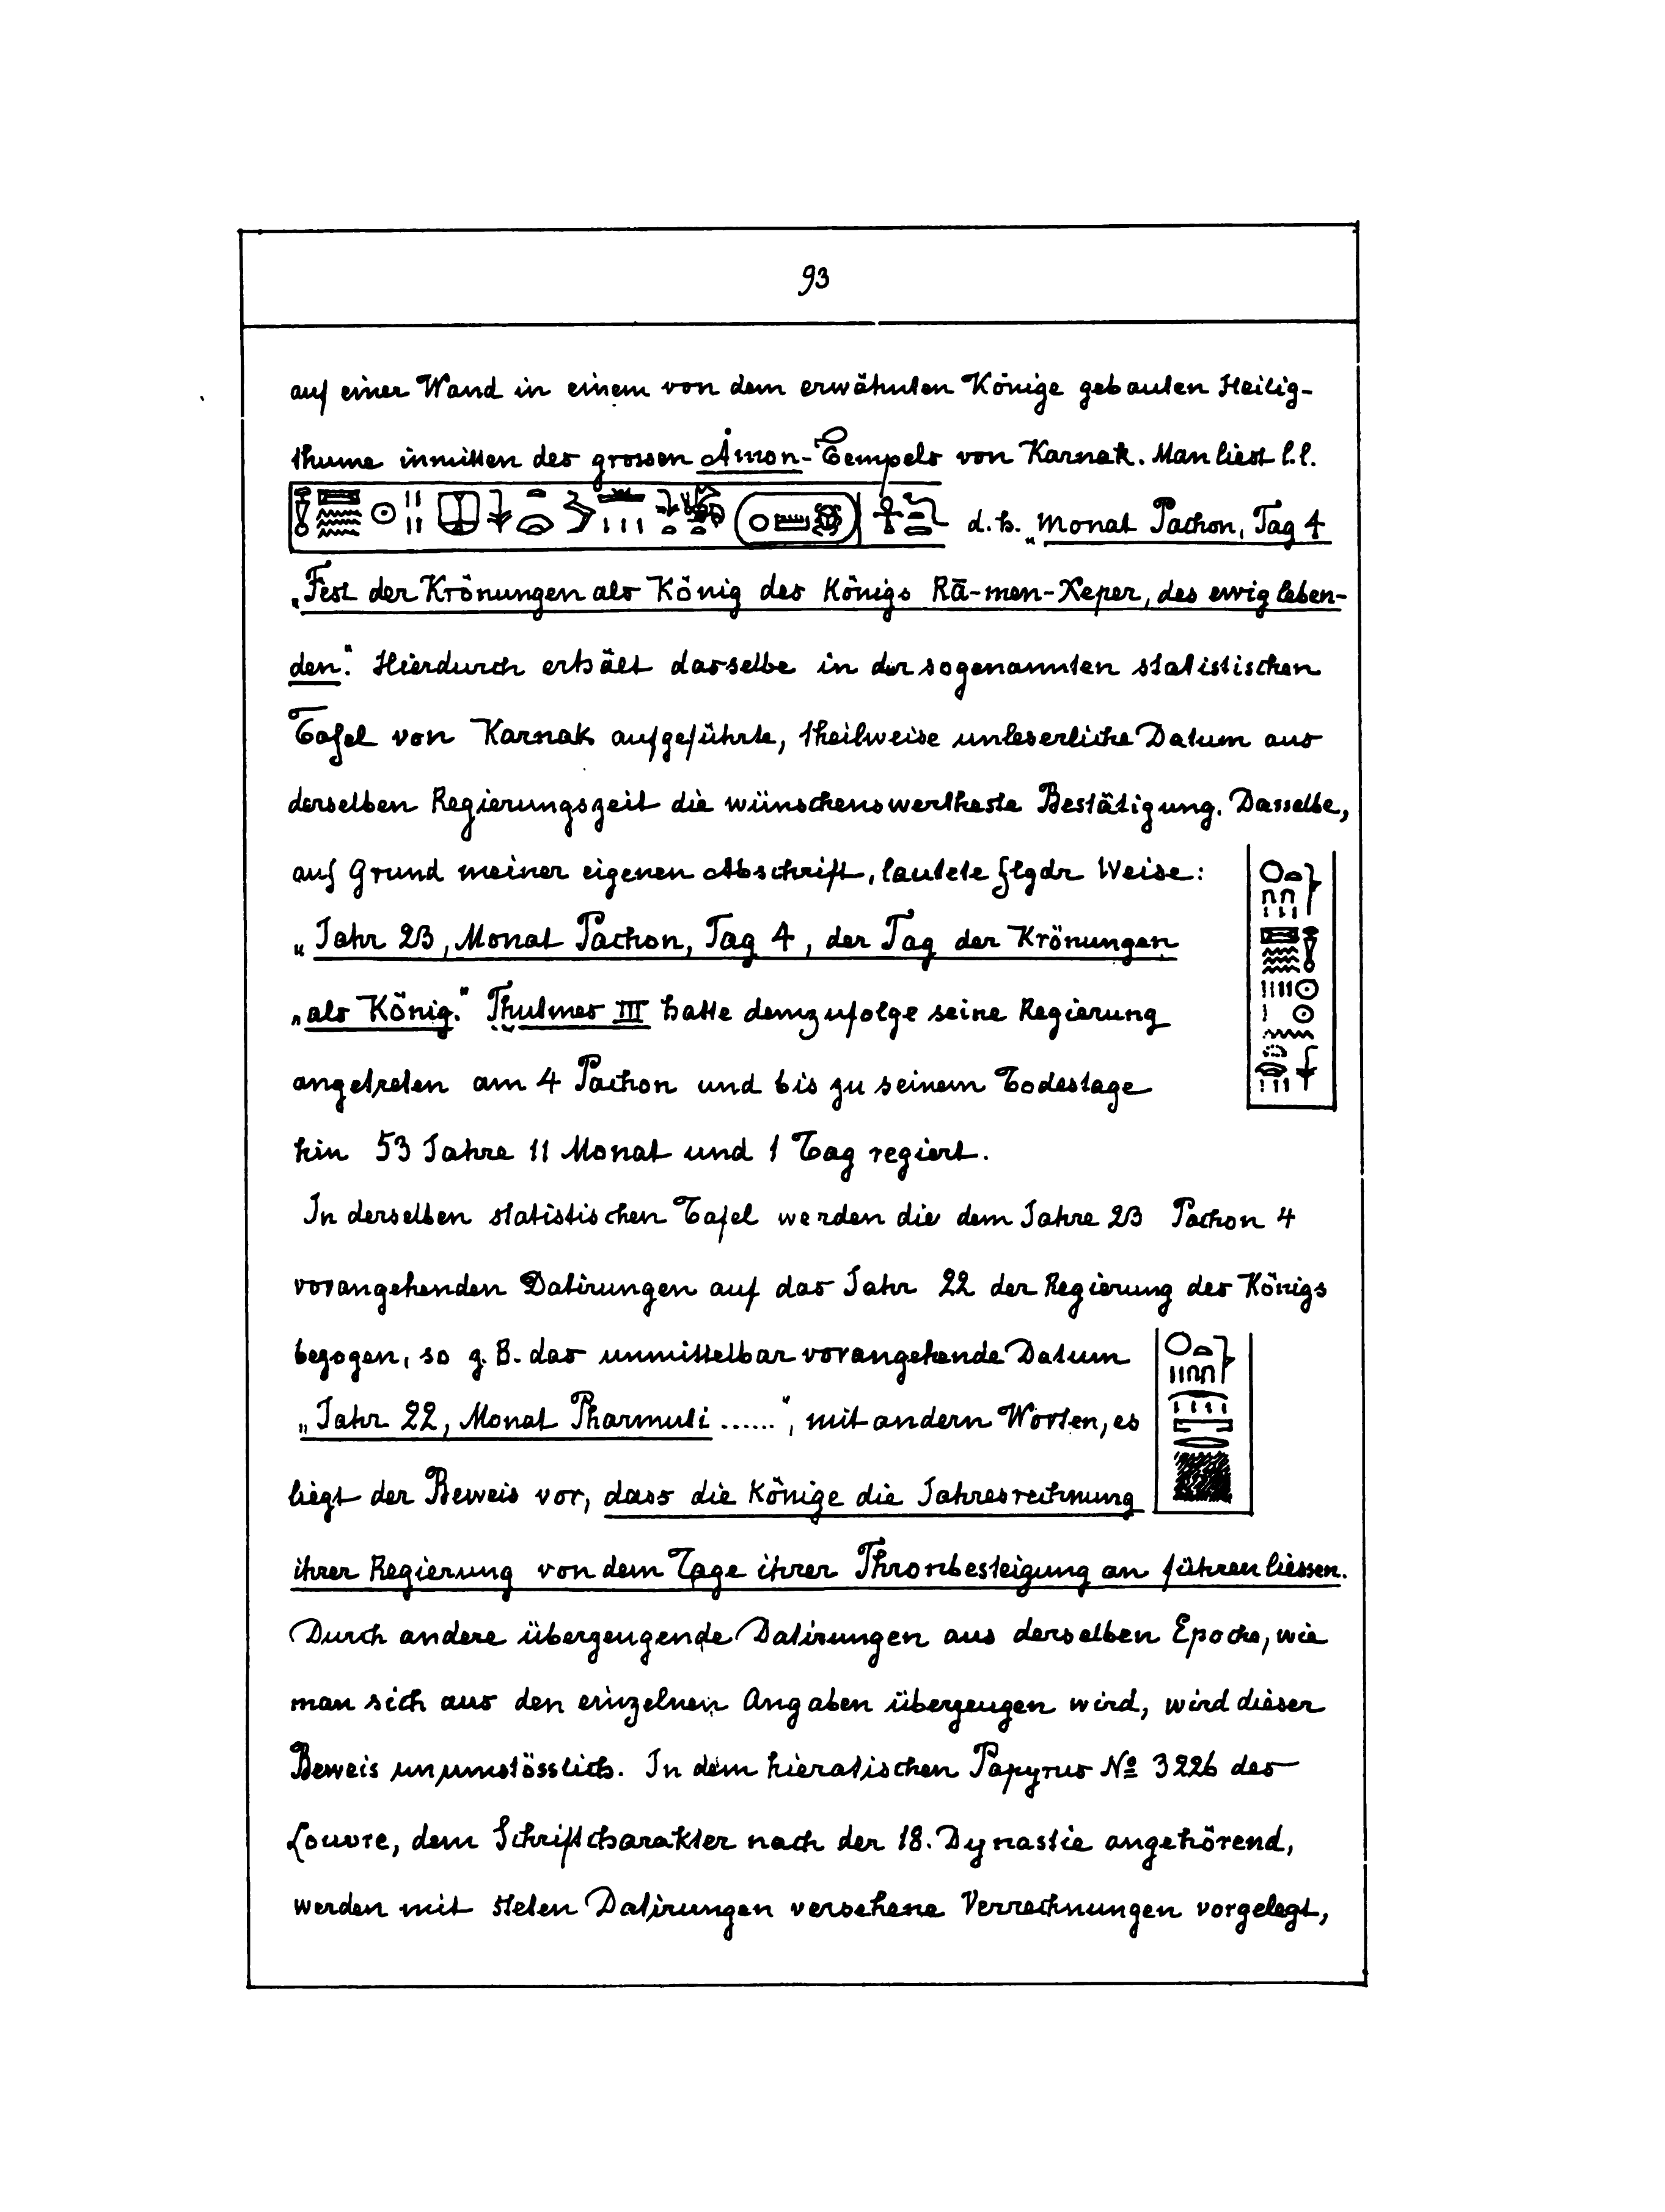 93
auf einer Wand in einem von dem erwähnten Könige gebauten Heilig-
thume inmitten des grossen Åmon-Tempels von Karnak. Man liest l.l.
d.h. „Monat Pachon, Tag 4
„Fest der Krönungen als König des Königs Rā-men-Xeper, des ewig leben-
den." Hierdurch erhält dasselbe in der sogenannten statistischen
Tafel von Karnak aufgeführte, theilweise unleserliche Datum aus
derselben Regierungszeit die wünschenswertheste Bestätigung. Dasselbe,
auf Grund meiner eigenen Abschrift, lautete flgdr Weise:
„Jahr 23, Monat Pachon, Tag 4, der Tag der Krönungen
„als König." Thutmes III hatte demzufolge seine Regierung
angetreten am 4 Pachon und bis zu seinem Todestage
hin 53 Jahre 11 Monat und 1 Tag regiert.
In derselben statistischen Tafel werden die dem Jahre 23 Pachon 4
vorangehenden Datirungen auf das Jahr 22 der Regierung des Königs
bezogen, so z.B. das unmittelbar vorangehende Datum
„Jahr 22, Monat Pharmuti ......", mit andern Worten, es
liegt der Beweis vor, dass die Könige die Jahresrechnung
ihrer Regierung von dem Tage ihrer Thronbesteigung an führen liessen.
Durch andere überzeugende Datirungen aus derselben Epoche, wie
man sich aus den einzelnen Angaben überzeugen wird, wird dieser
Beweis unumstösslich. In dem hieratischen Papyrus Nº 3226 des
Louvre, dem Schriftcharakter nach der 18. Dynastie angehörend,
werden mit steten Datirungen versehene Verrechnungen vorgelegt,